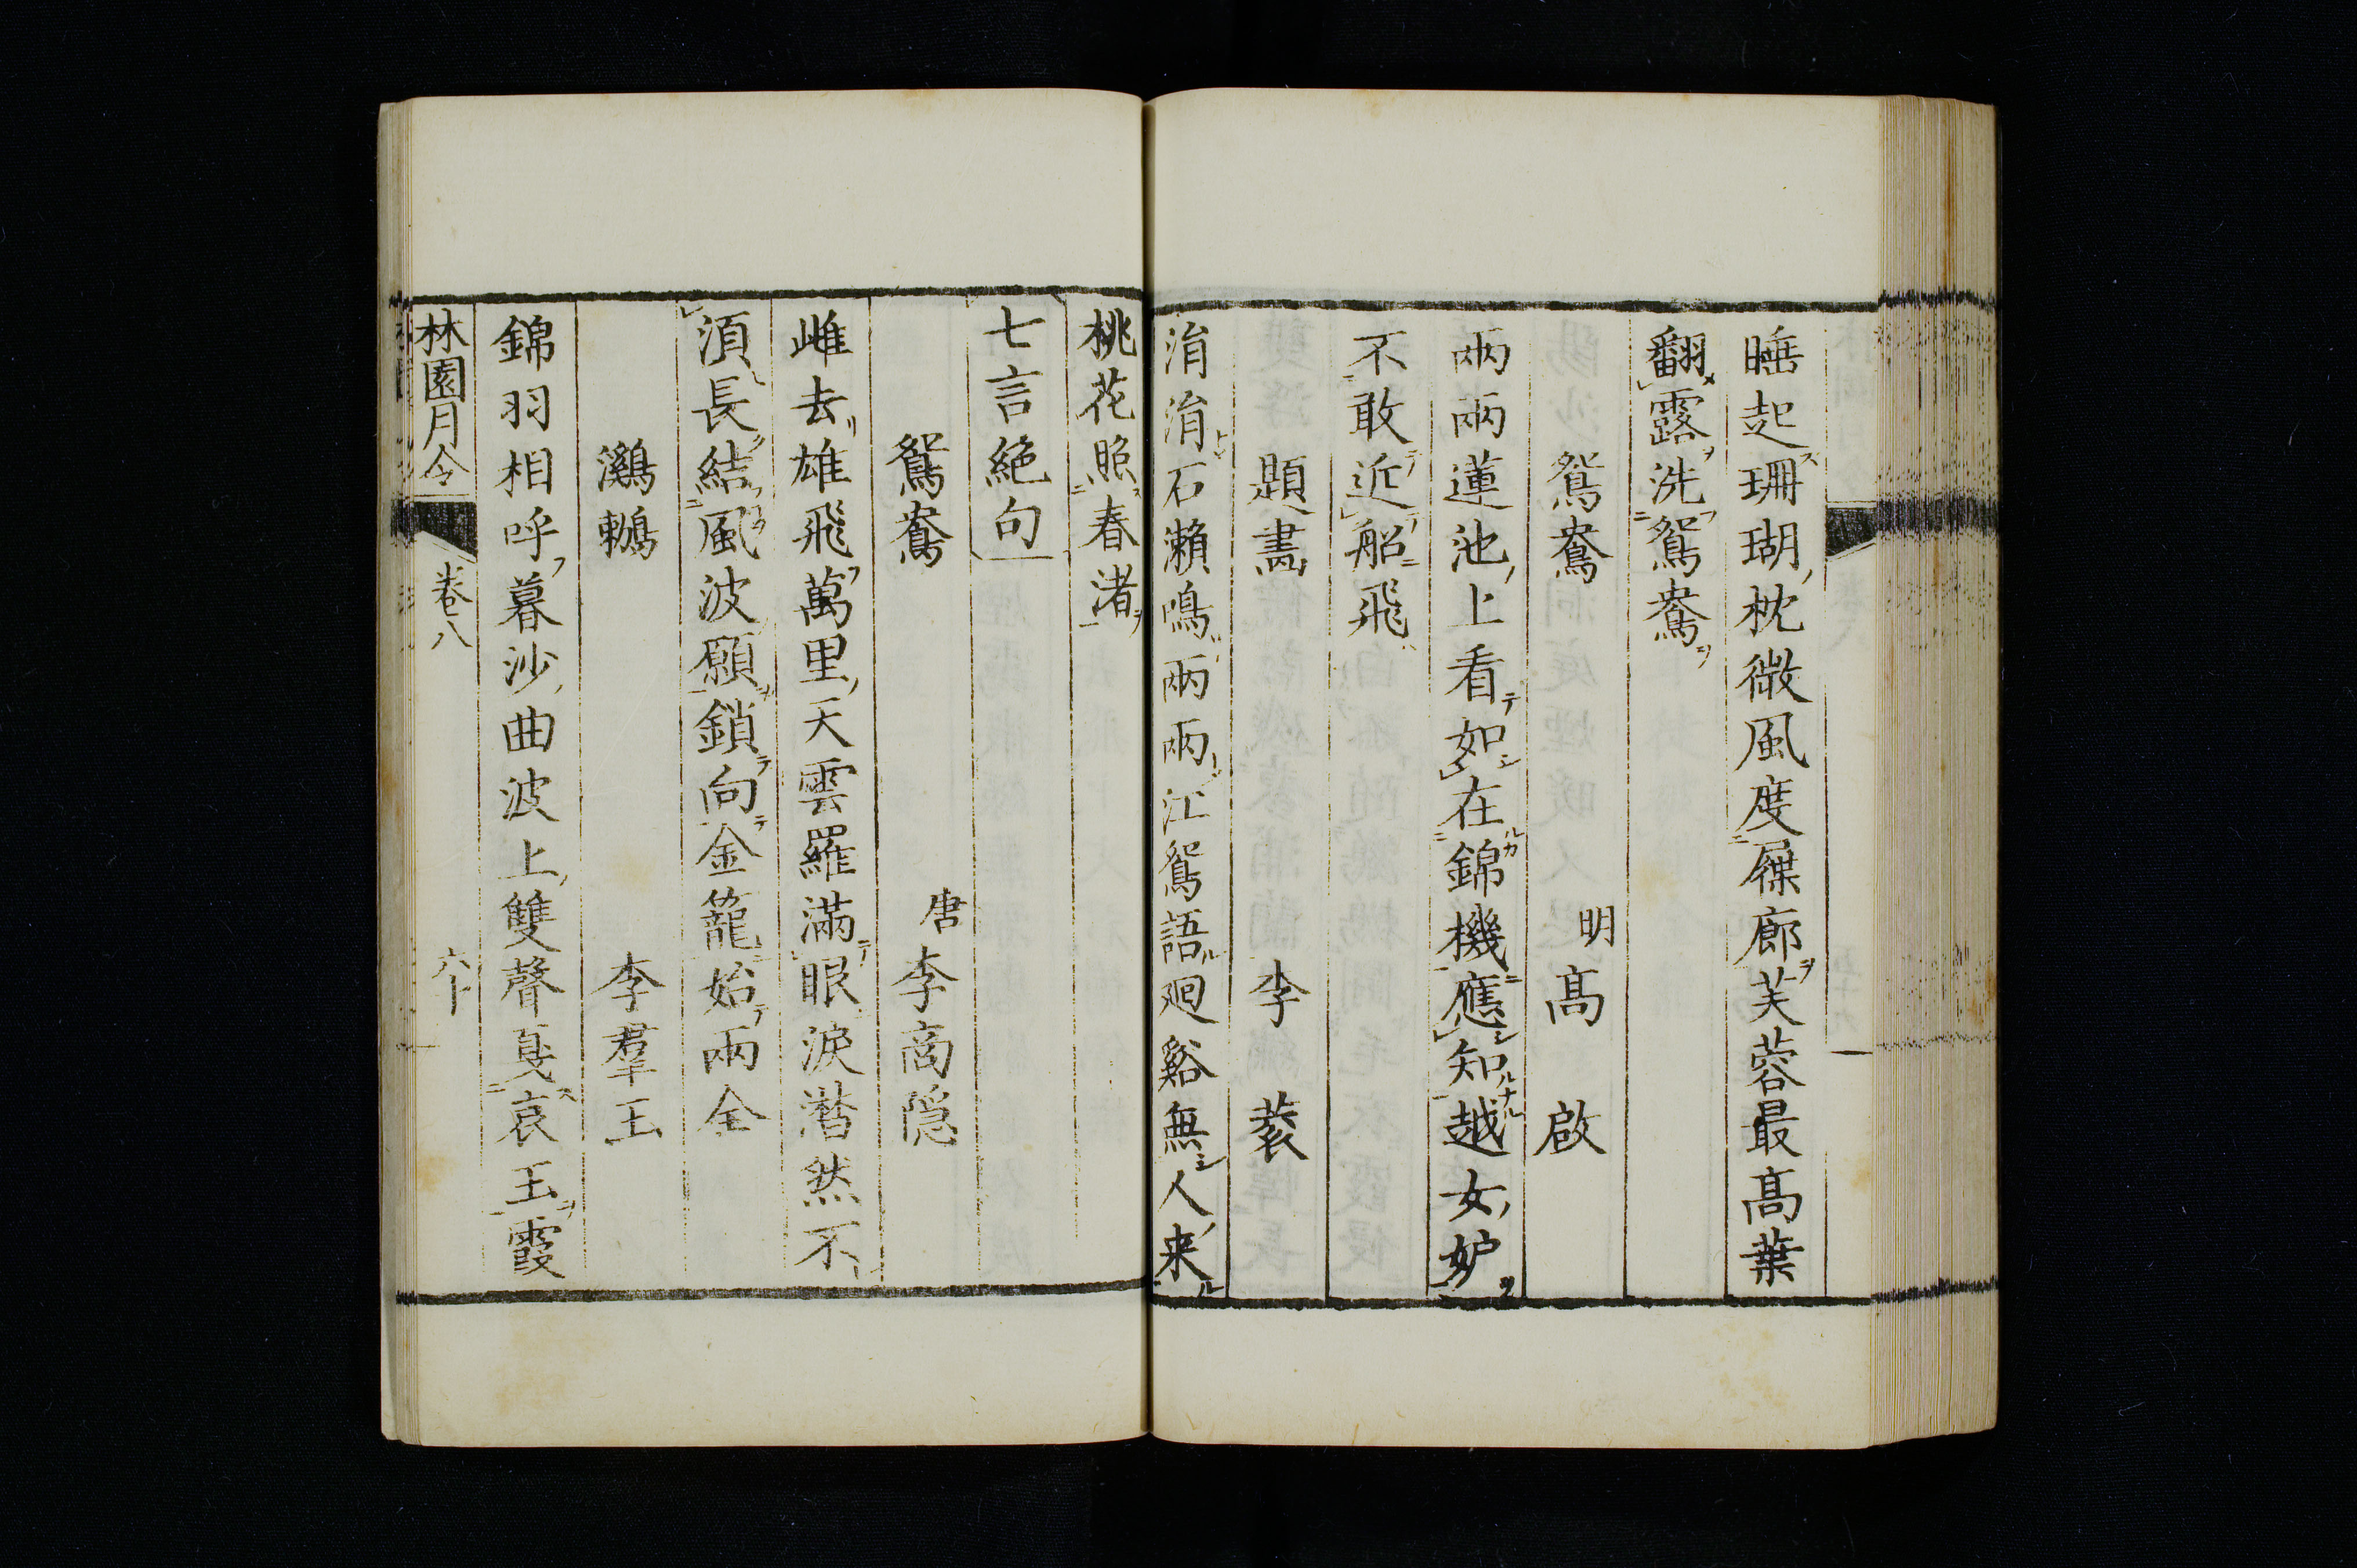 睡起珊瑚枕微風度屧廊芙蓉最高葉
翻露洗鴛鴦
鴛鴦 明 高啟
兩兩蓮池上看如在錦機應知越女妒
不敢近船飛
題畵 李蓘
涓涓石瀨鳴兩兩江鴛語廻谿無人来
桃花照春渚
七言絕句
鴛鴦 唐 李商隠
雌去雄飛萬里天雲羅滿眼淚潸然不
湏長結風波願鎖向金籠始兩全
鸂鶒 李羣玉
錦羽相呼暮沙曲波上雙聲戛哀玉霞
林園月令 卷八 六十